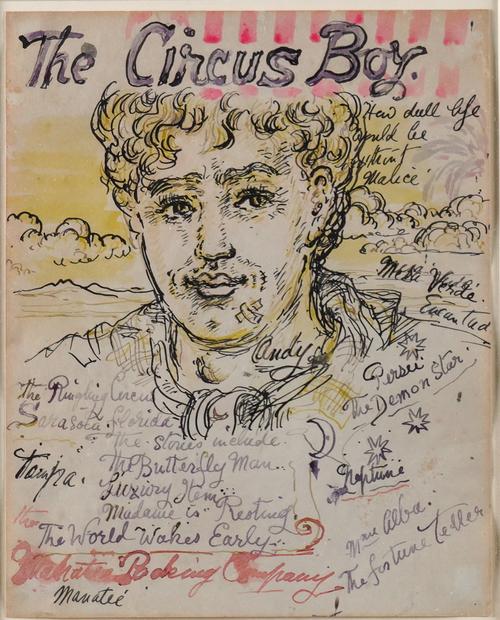 The Circus Boy.
How dull life
would be
without
Malice
Mesa Verde.
Encantad
Andy
Persei
The Demon Star.
The Ringling Circus
Sarasota, Florida
The stories include
Tampa.
The Butterfly Man..
Luxury Item...
Neptune
Madame is Resting.
The World Wakes Early...
Mme Alba.
The fortune teller
Booking Company
Manatee